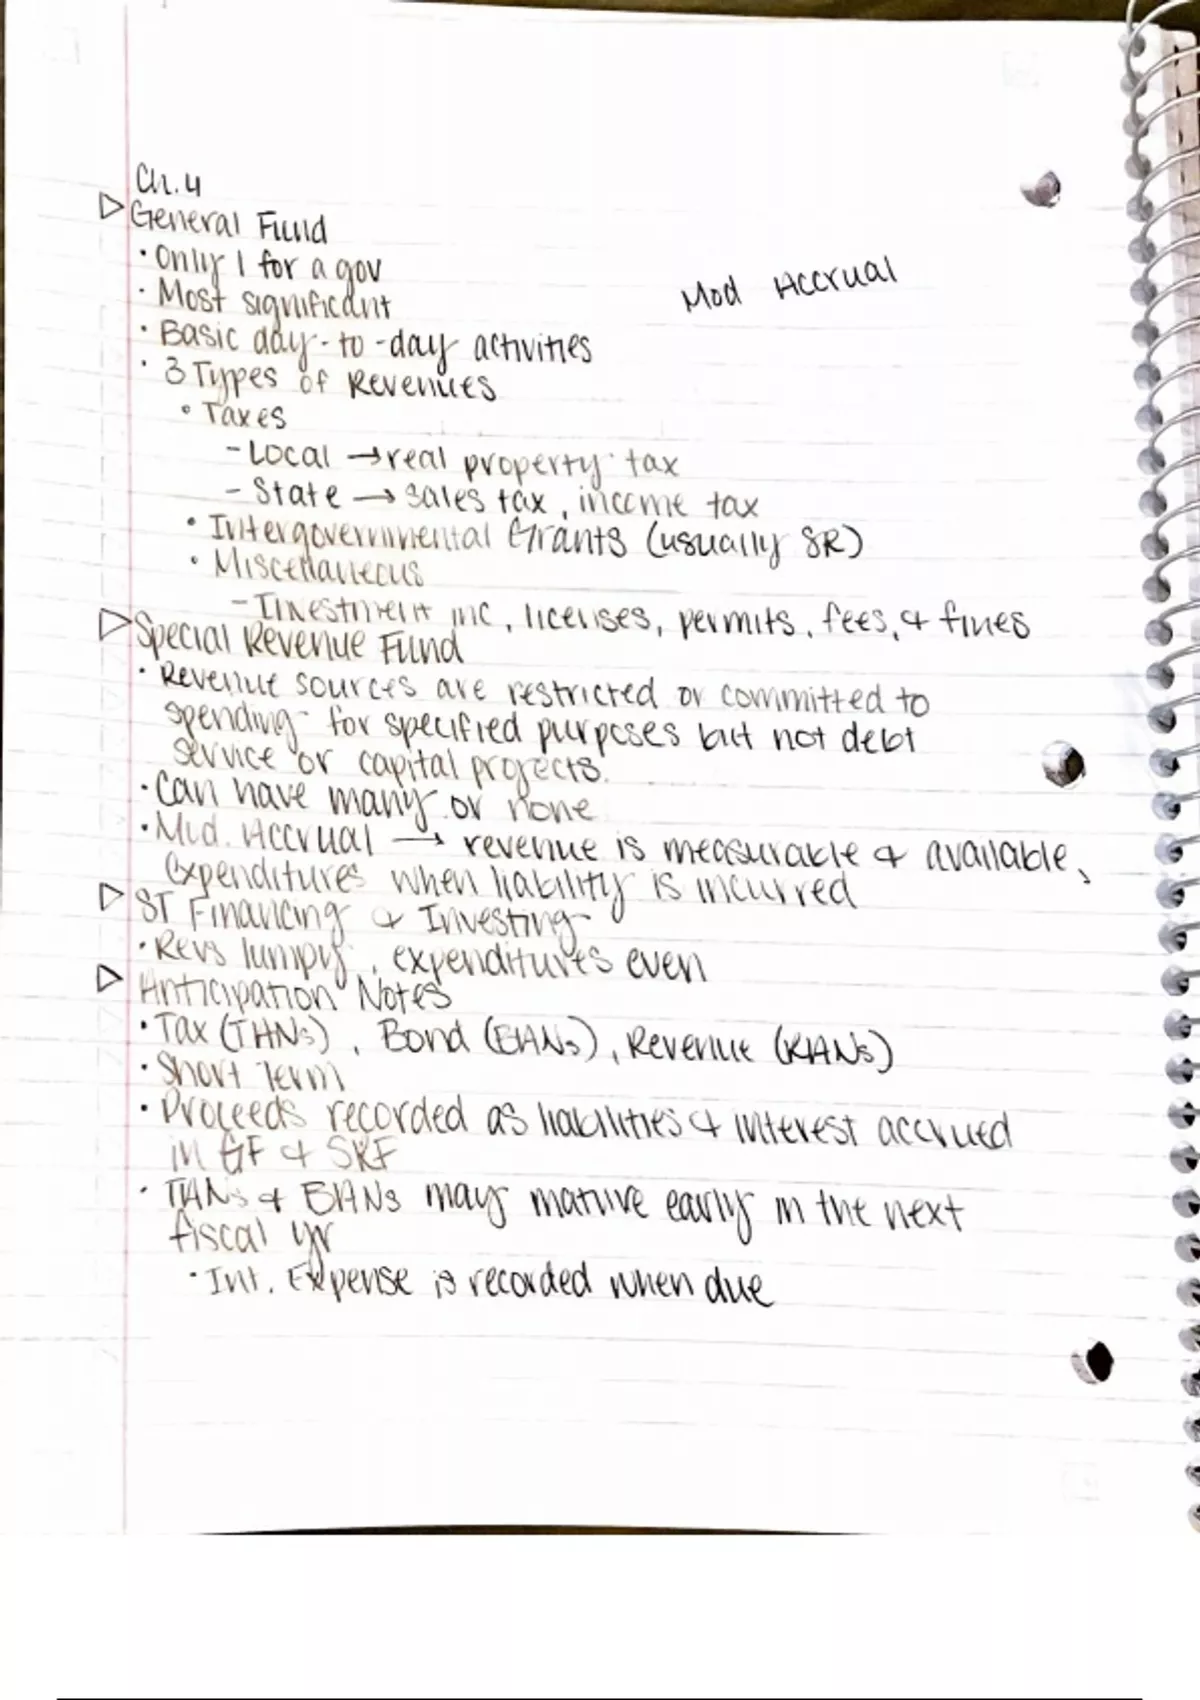 Ch. 4
▷ General Fund
· Only 1 for a gov
Mod Accrual
· Most significant
· Basic day-to-day activities
· 3 Types of Revenues
∘ Taxes
- Local → real property tax
- State → sales tax, income tax
• Intergovernmental Grants (usually SR)
• Miscellaneous
- Investment inc, licenses, permits, fees, & fines
▷ Special Revenue Fund
· Revenue sources are restricted or committed to
spending for specified purposes but not debt
service or capital projects.
· Can have many or none
· Mod. Accrual → revenue is measurable & available,
expenditures when liability is incurred
▷ ST Financing & Investing
· Revs lumpy, expenditures even
▷ Anticipation Notes
· Tax (TANs), Bond (BANs), Revenue (RANs)
· Short Term
· Proceeds recorded as liabilities & interest accrued
in GF & SRF
· TANs & BANs may mature early in the next
fiscal yr
· Int. Expense is recorded when due